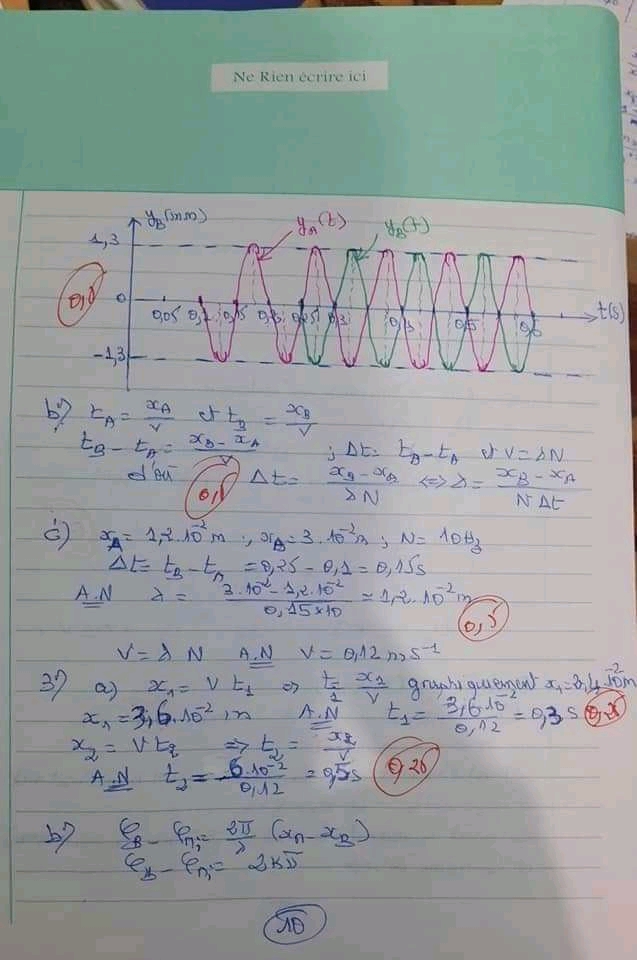 Ne Rien écrire ici
y_B(mm)
y_A(t)
y_B(t)
1,3
0
-1,3
0,05 0,1 0,15 0,25 0,3 0,6
t(s)
b) t_A = x_A/V et t_B = x_B/V
t_B - t_A = (x_B - x_A)/V ; Δt = t_B - t_A et V = λN
d'où Δt = (x_B - x_A)/λN ⇔ λ = (x_B - x_A)/NΔt
c) x_A = 1,2.10⁻² m ; x_B = 3.10⁻² m ; N = 10Hz
Δt = t_B - t_A = 0,25 - 0,1 = 0,15s
A.N λ = (3.10⁻² - 1,2.10⁻²)/(0,15×10) = 1,2.10⁻² m
0,5
V = λ N A.N V = 0,12 m s⁻¹
3) a) x₁ = V t₁ ⇒ t₁ = x₁/V graphiquement
x₁ = 3,6.10⁻² m A.N t₁ = 3,6.10⁻²/0,12 = 0,3 s 0,25
x₂ = V t₂ ⇒ t₂ = x₂/V
A.N t₂ = 6.10⁻²/0,12 = 0,5s 0,25
b) φ_B - φ_Mi = 2π/λ (x_M - x_B)
φ_B - φ_Mi = 2kπ
10